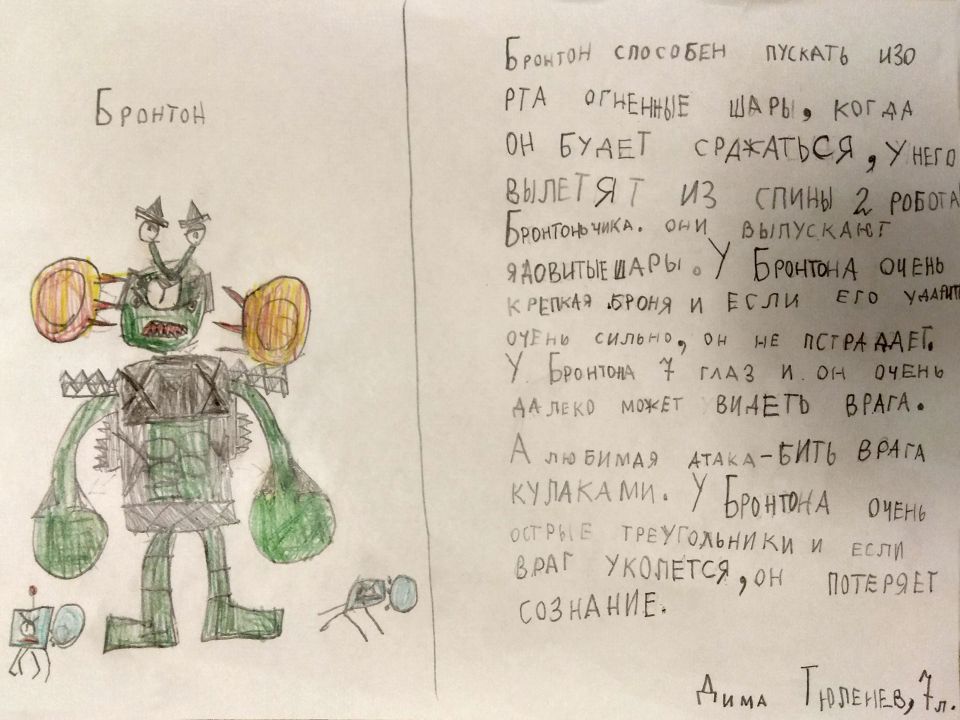 Бронтон
Бронтон способен пускать изо
рта огненные шары, когда
он будет сражаться, у него
вылетят из спины 2 робота
Бронтоньчика. они выпускают
ядовитые шары. У Бронтона очень
крепкая броня и если его ударить
очень сильно, он не пстрадает.
У Бронтона 7 глаз и он очень
далеко может видеть врага.
А любимая атака-бить врага
кулаками. У Бронтона очень
острые треугольники и если
враг уколется, он потеряет
сознание.
Дима Тюленев, 7 л.